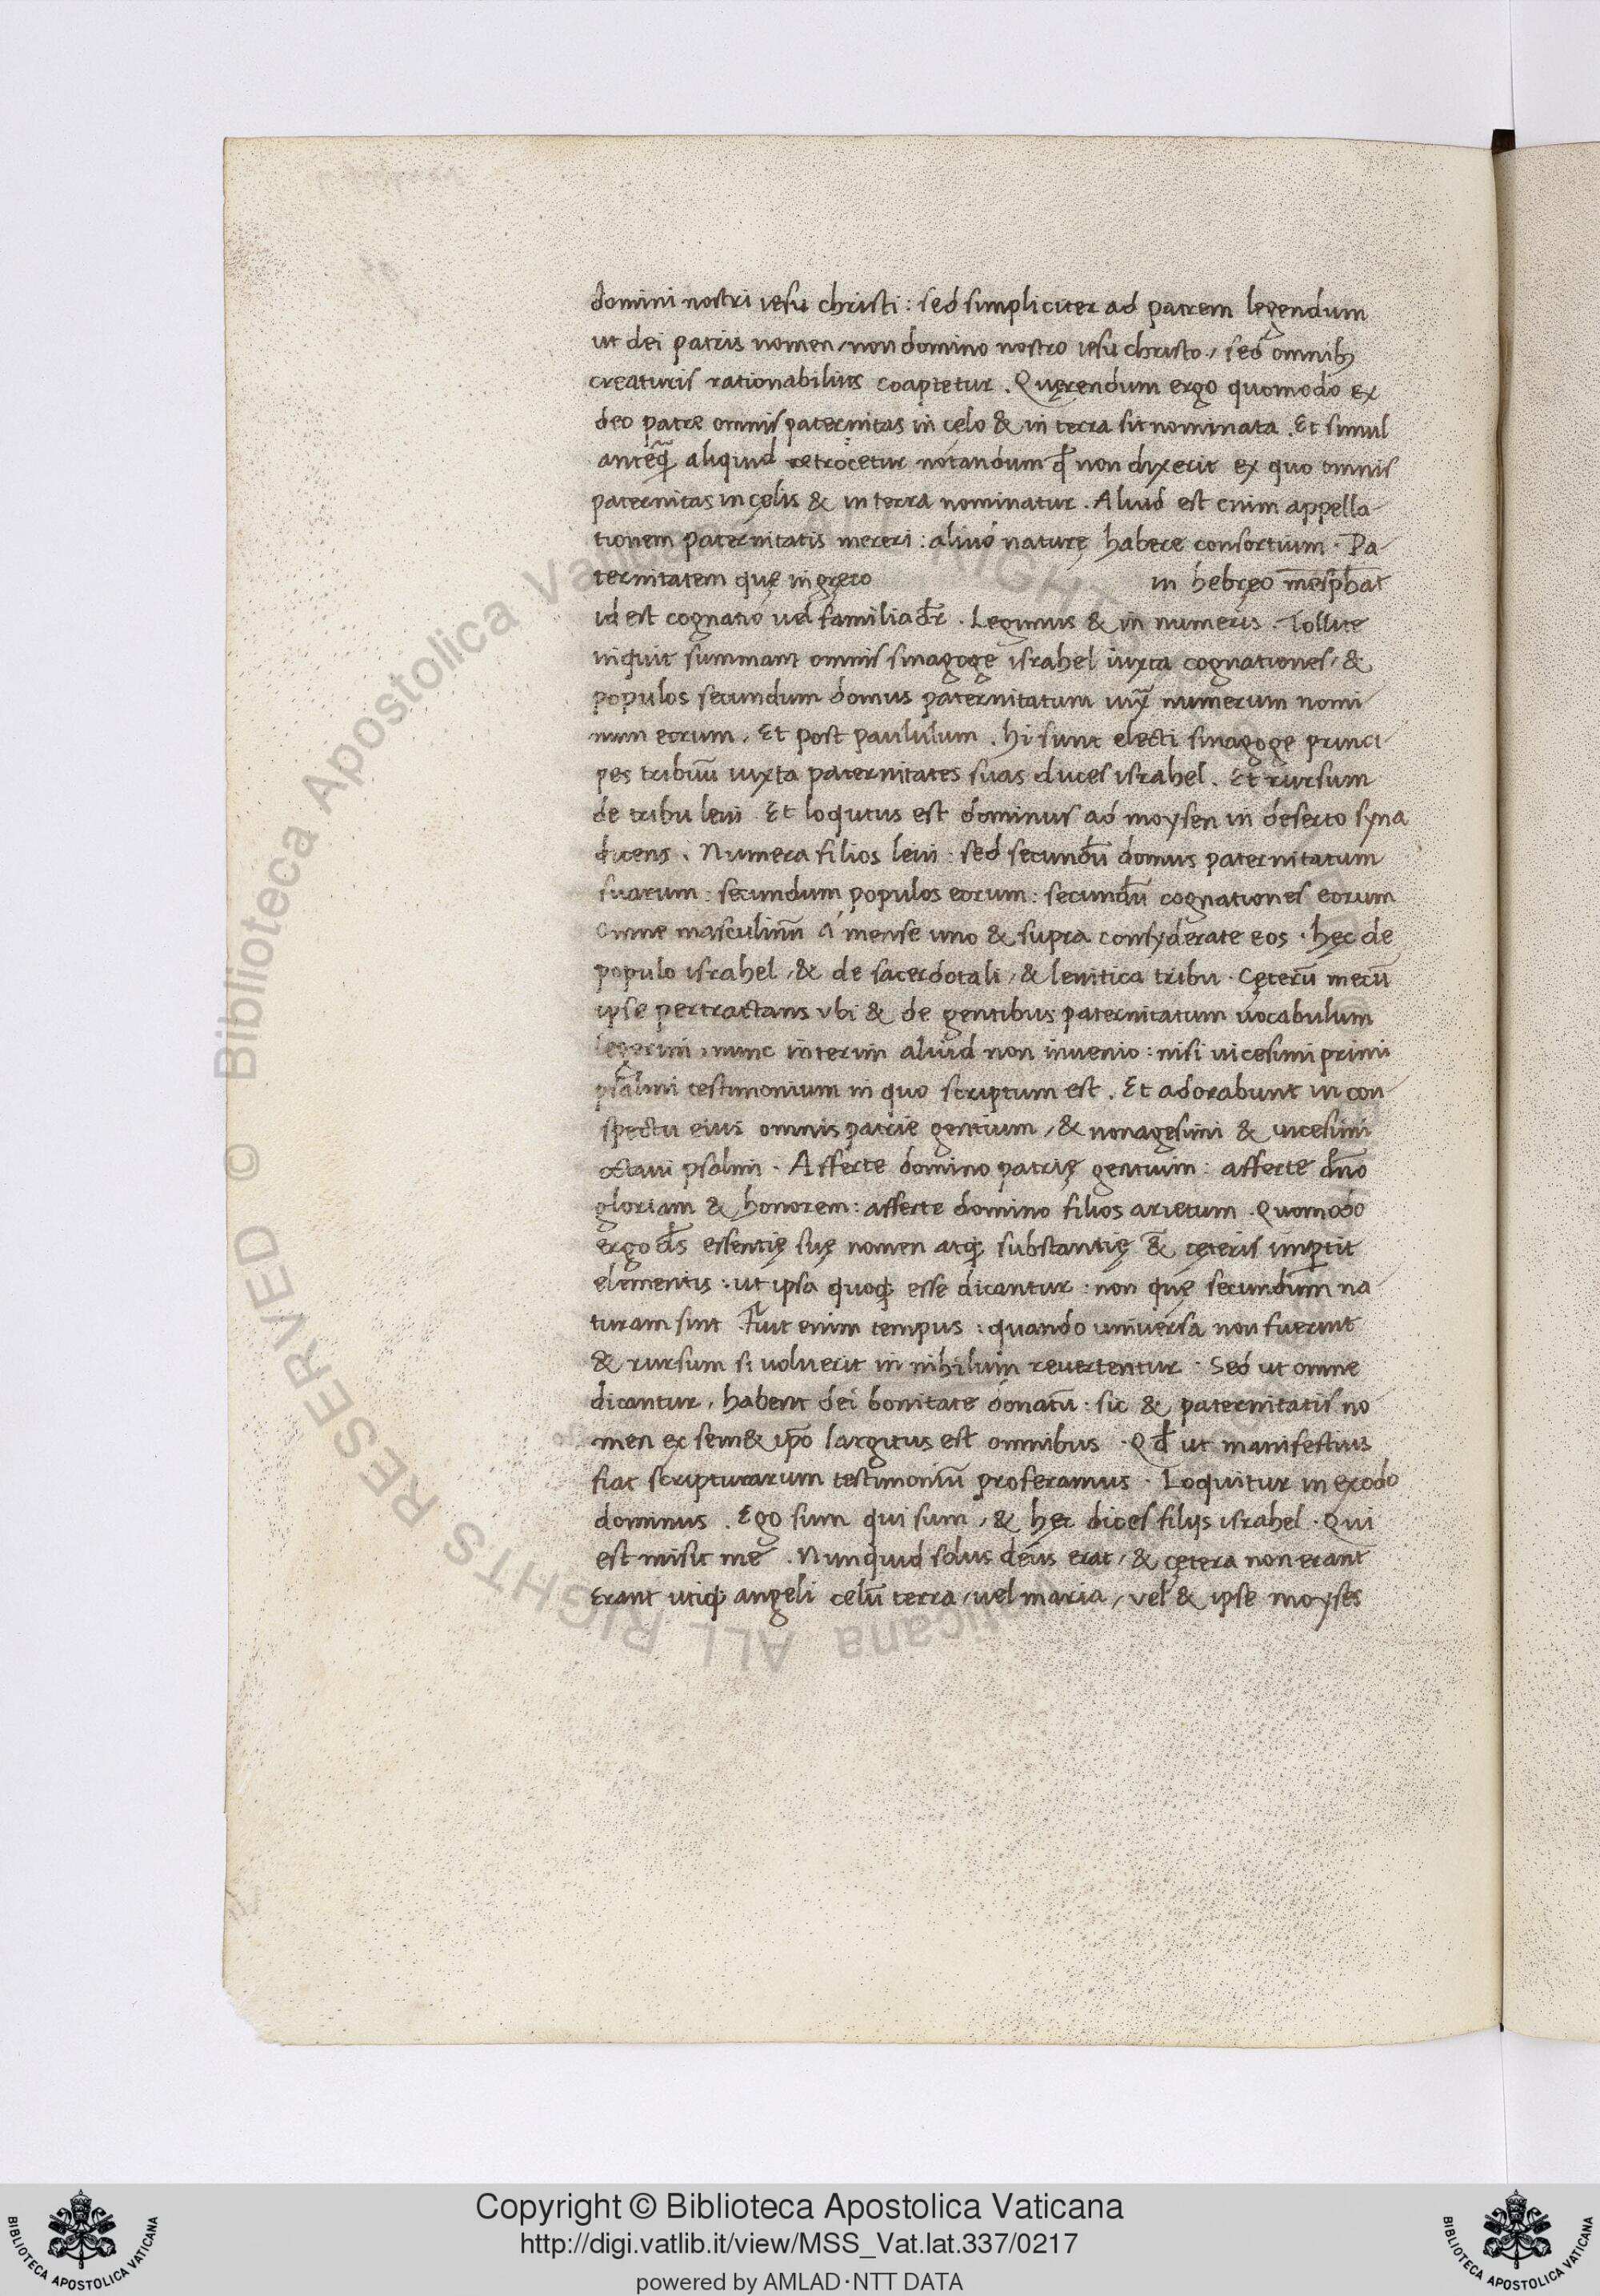 domini nostri iesu christi : sed simpliciter ad patrem legendum
ut dei patris nomen / non domino nostro iesu christo / sed omnibꝫ
creaturis rationabilius coaptetur . Quęrendum ergo quomodo ex
deo patre omnis paternitas in cęlo & in terra sit nominata . Et simul
anteq̃ꝫ aliquid retrocetur notandum qđ non dixerit ex quo omnis
paternitas in cęlis & in terra nominatur . Aliud est enim appella-
tionem paternitatis mereri : aliud naturę habere consortium . Pa-
ternitatem quę in gręco in hebręo mesphat
id est cognatio uel familia dr̃ . Legimus & in numeris . Tollite
inquit summam omnis sinagogę israhel iuxta cognationes / &
populos secundum domus paternitatum iux̃ numerum nomi-
num eorum . Et post paululum . hi sunt electi sinagogę princi-
pes tribuū iuxta paternitates suas duces israhel . Et rursum
de tribu leui . Et loqutus est dominus ad moysen in deserto syna
dicens . Numera filios leui : sed secundū domus paternitatum
suarum : secundum populos eorum : secundū cognationes eorum
omne masculinū á mense uno & supra consyderate eos . hęc de
populo israhel / & de sacerdotali / & leuitica tribu . Cęterū mecū
ipse pertractans ubi & de gentibus paternitatum uocabulum
legerim nunc interim aliud non inuenio : nisi uicesimi primi
psalmi testimonium in quo scriptum est . Et adorabunt in con-
spectu eius omnis patrie gentium / & nonagesimi & uicesimi
octaui psalmi . Afferte domino patrię gentium : afferte dn̄o
gloriam & honorem : afferte domino filios arietum . Quomodo
ergo ds̄ essentię suę nomen atqꝫ substantię & cęteris impertit
elementis : ut ipsa quoqꝫ esse dicantur : non quę secundum na-
turam sint Fuit enim tempus : quando uniuersa non fuerint
& rursum si uoluerit in nihilum reuertentur . Sed ut omne
dicantur , habent dei bonitate donatū : sic & paternitatis no-
men ex sem& ip̄o largitus est omnibus . Qđ ut manifestius
fiat scripturarum testimoniū proferamus . Loquitur in exodo
dominus . Ego sum qui sum / & hęc dices filijs israhel . Qui
est misit me . Nunquid solus deus erat / & cętera non erant
Erant utiqꝫ angeli celū terra / uel maria / uel & ipse moyses
© Biblioteca Apostolica Vaticana ALL RIGHTS RESERVED
Copyright © Biblioteca Apostolica Vaticana
http://digi.vatlib.it/view/MSS_Vat.lat.337/0217
powered by AMLAD·NTT DATA
BIBLIOTECA APOSTOLICA VATICANA
BIBLIOTECA APOSTOLICA VATICANA